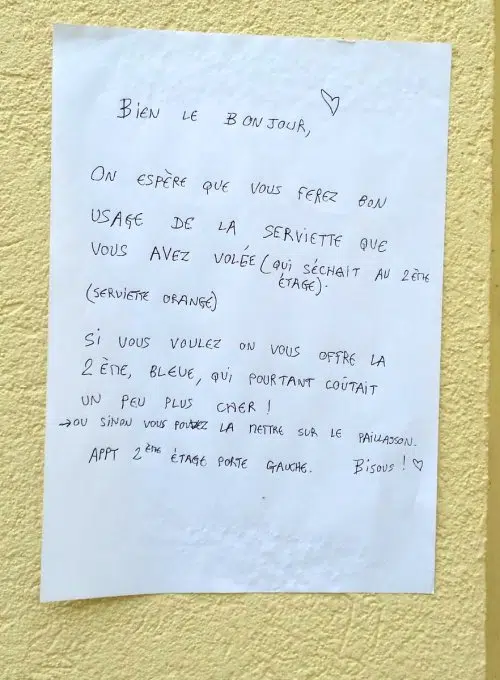 BIEN LE BONJOUR, ♡
ON ESPÈRE QUE VOUS FEREZ BON
USAGE DE LA SERVIETTE QUE
VOUS AVEZ VOLÉE (QUI SÉCHAIT AU 2ÈME
ÉTAGE).
(SERVIETTE ORANGE)
SI VOUS VOULEZ ON VOUS OFFRE LA
2ÈME, BLEUE, QUI POURTANT COÛTAIT
UN PEU PLUS CHER !
→OU SINON VOUS POUVEZ LA METTRE SUR LE PAILLASSON.
APPT 2ÈME ÉTAGE PORTE GAUCHE. BISOUS ! ♡